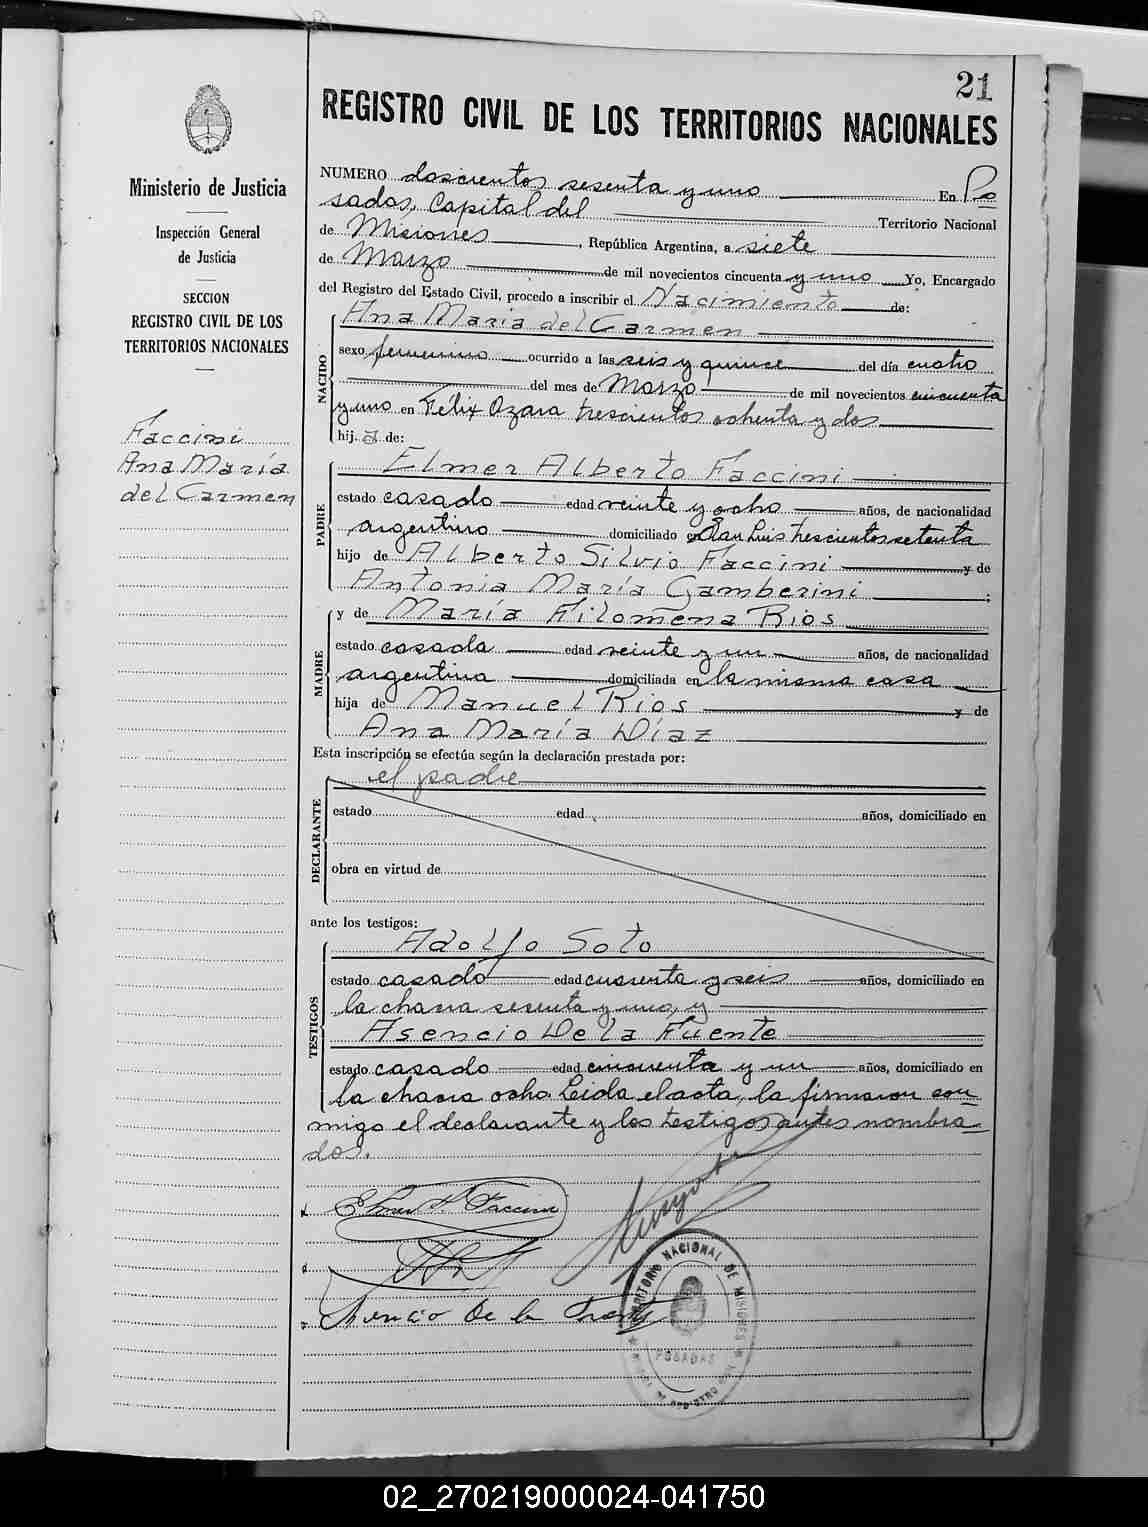 21
REGISTRO CIVIL DE LOS TERRITORIOS NACIONALES
Ministerio de Justicia
Inspección General
de Justicia
SECCION
REGISTRO CIVIL DE LOS
TERRITORIOS NACIONALES
Faccini
Ana María
del Carmen
NUMERO doscientos sesenta y uno En Po
sadas, Capital del Territorio Nacional
de Misiones, República Argentina, a siete
de Marzo de mil novecientos cincuenta y uno Yo, Encargado
del Registro del Estado Civil, procedo a inscribir el Nacimiento de:
Ana María del Carmen
NACIDO
sexo femenino ocurrido a las seis y quince del día cuatro
del mes de Marzo de mil novecientos cincuenta
y uno en Félix Azara trescientos ochenta y dos
hij a de:
PADRE
Elmer Alberto Faccini
estado casado edad veinte y ocho años, de nacionalidad
argentino domiciliado en San Luis trescientos setenta
hijo de Alberto Silvio Faccini y de
Antonia María Gamberini ;
MADRE
y de María Filomena Rios
estado casada edad veinte y un años, de nacionalidad
argentina domiciliada en la misma casa
hija de Manuel Rios y de
Ana María Díaz
Esta inscripción se efectúa según la declaración prestada por:
el padre
DECLARANTE
estado edad años, domiciliado en
obra en virtud de
ante los testigos:
TESTIGOS
Adolfo Soto
estado casado edad cuarenta y seis años, domiciliado en
la chacra sesenta y uno, y
Asencio De la Fuente
estado casado edad cincuenta y un años, domiciliado en
la chacra ocho. Leida el acta, la firmaron con
migo el declarante y los testigos antes nombra
dos.
Elmer A. Faccini
Asencio De la Fuente
TERRITORIO NACIONAL DE MISIONES
POSADAS
02_270219000024-041750